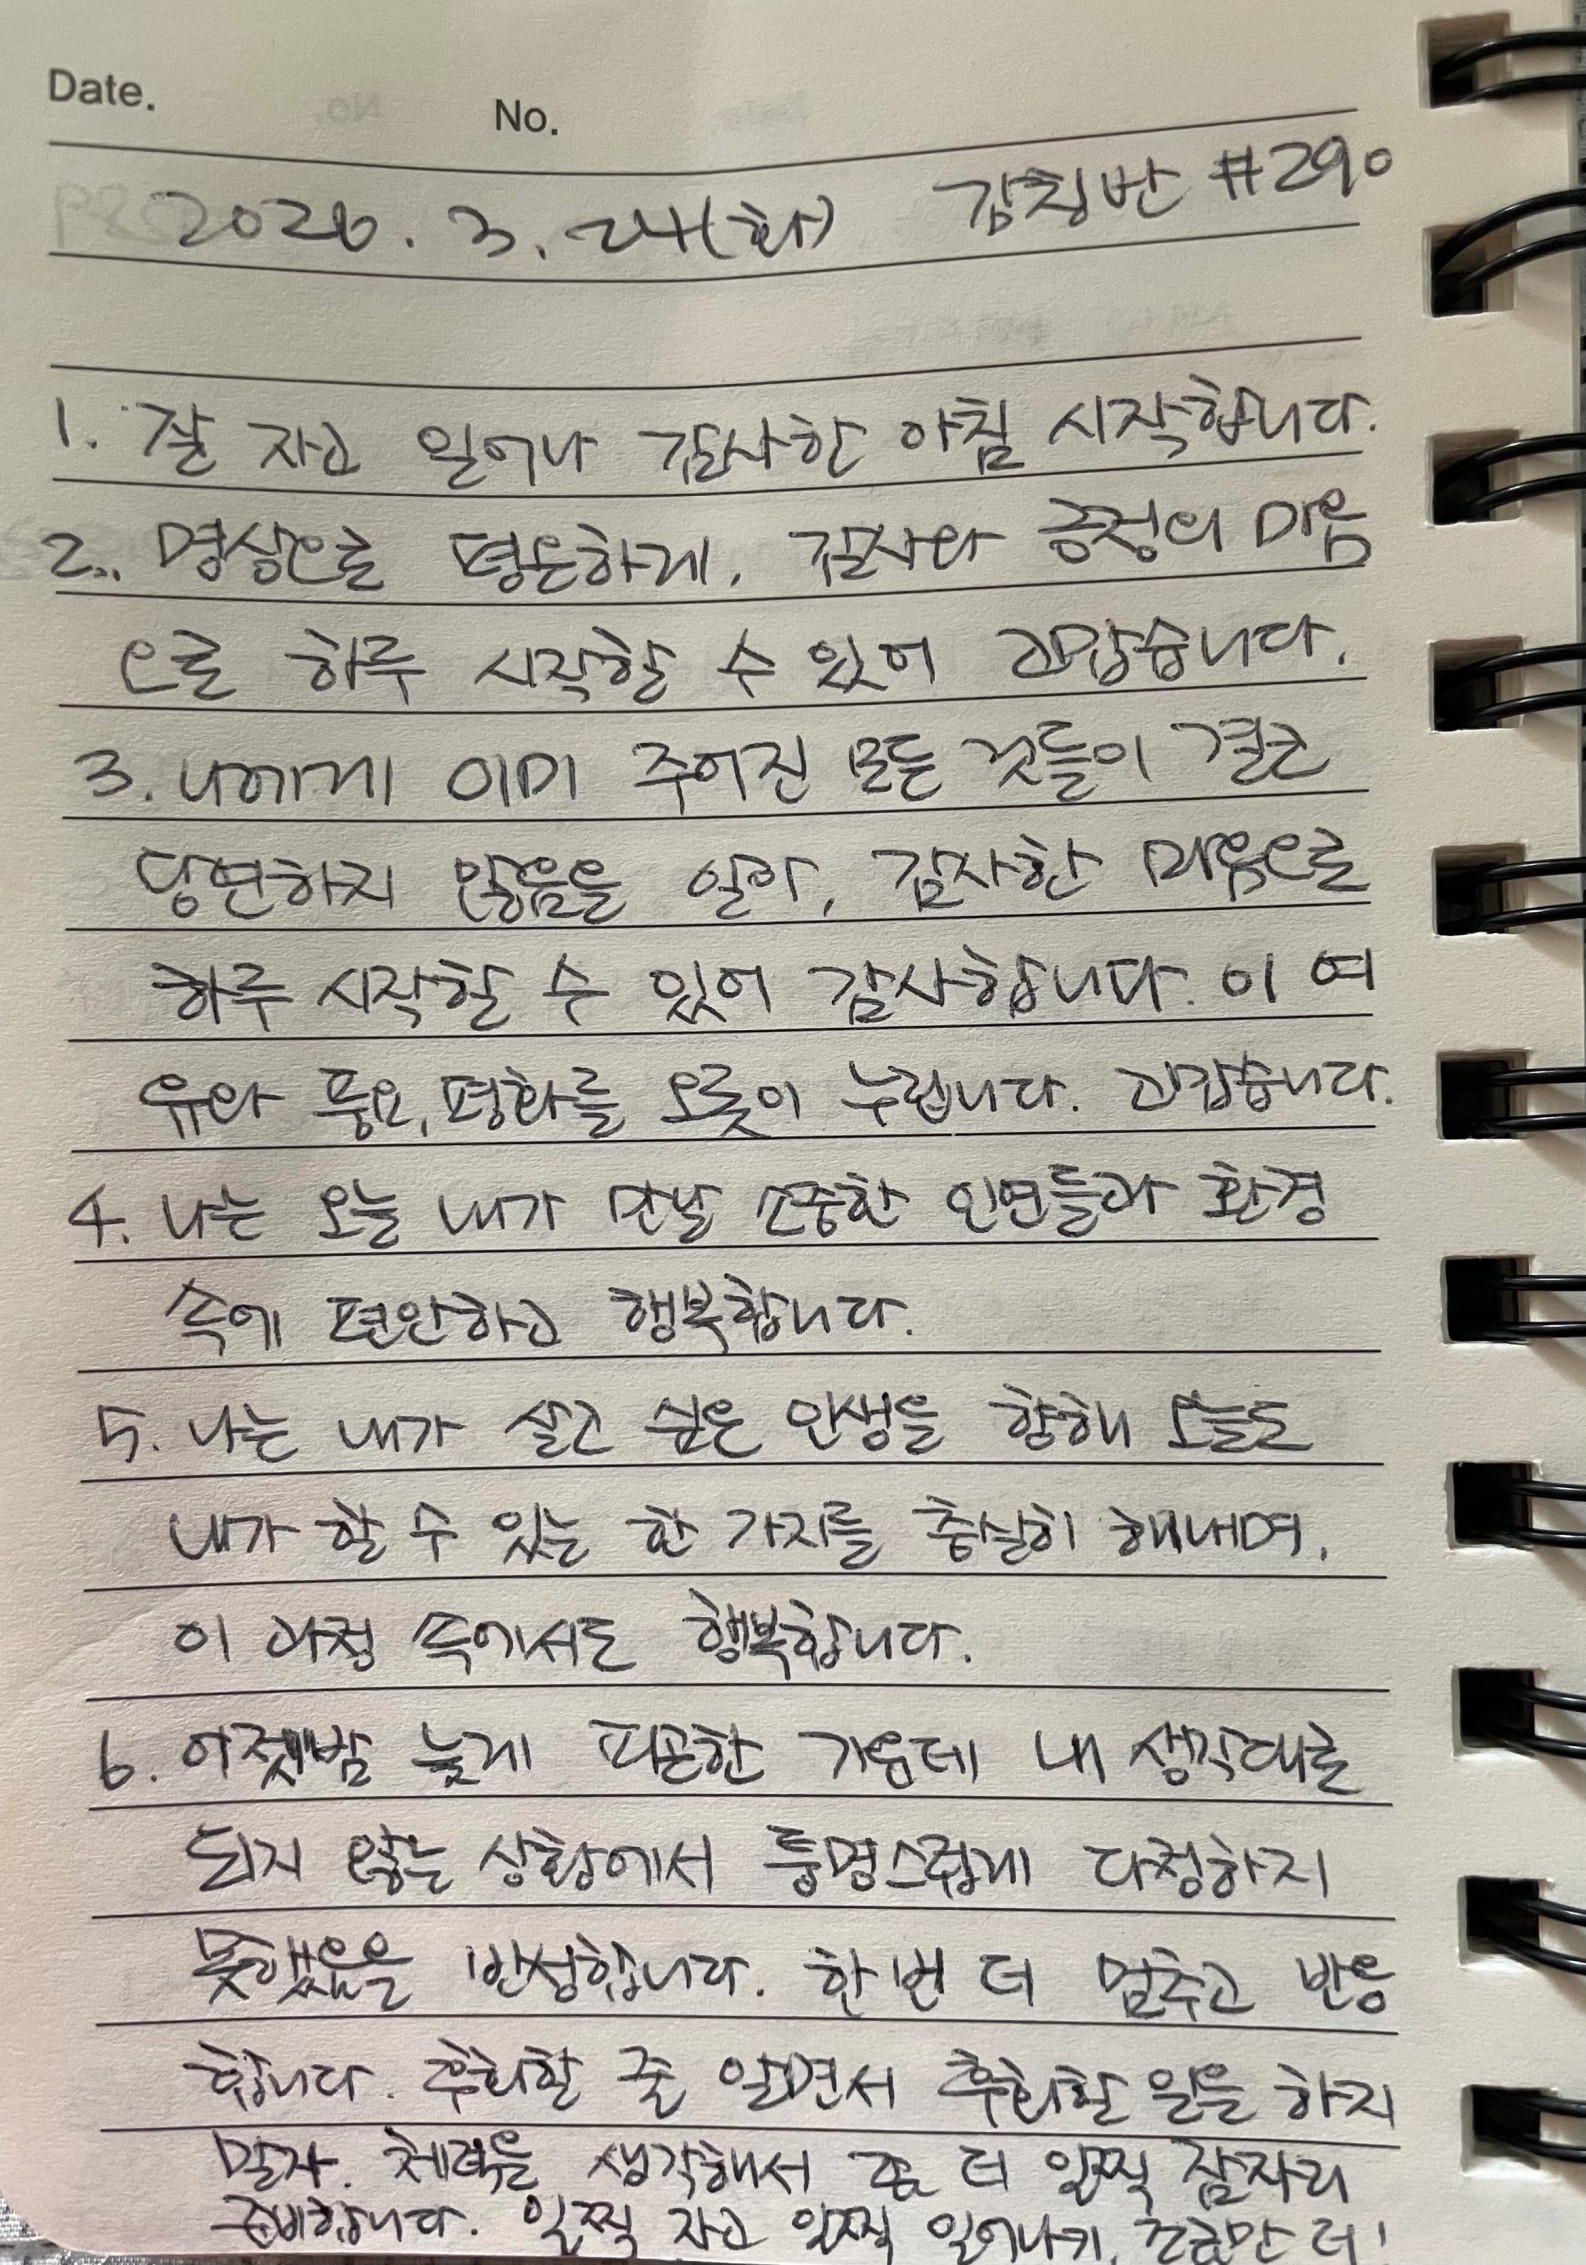 Date.
No.
2026. 3. 24(화) 감칭반 #290
1. 잘 자고 일어나 감사한 아침 시작합니다.
2. 명상으로 평온하게, 감사와 긍정의 마음
으로 하루 시작할 수 있어 고맙습니다.
3. 나에게 이미 주어진 모든 것들이 결코
당연하지 않음을 알아, 감사한 마음으로
하루 시작할 수 있어 감사합니다. 이 여
유와 풍요, 평화를 오롯이 누립니다. 고맙습니다.
4. 나는 오늘 내가 만날 소중한 인연들과 환경
속에 편안하고 행복합니다.
5. 나는 내가 살고 싶은 인생을 향해 오늘도
내가 할 수 있는 한 가지를 충실히 해내며,
이 과정 속에서도 행복합니다.
6. 어젯밤 늦게 피곤한 가운데 내 생각대로
되지 않는 상황에서 퉁명스럽게 다정하지
못했음을 반성합니다. 한번 더 멈추고 반응
합니다. 후회할 줄 알면서 후회할 일을 하지
말자. 체력을 생각해서 좀 더 일찍 잠자리
준비합니다. 일찍 자고 일찍 일어나기, 조금만 더!